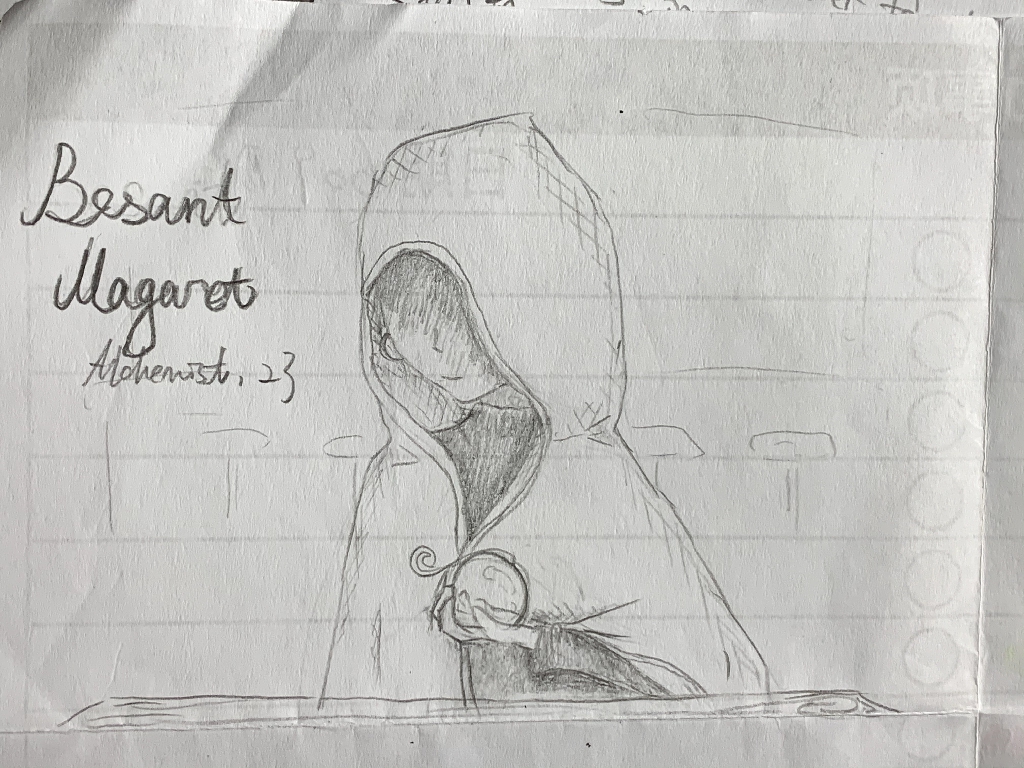 Besant
Magaret
Alchemist, 23